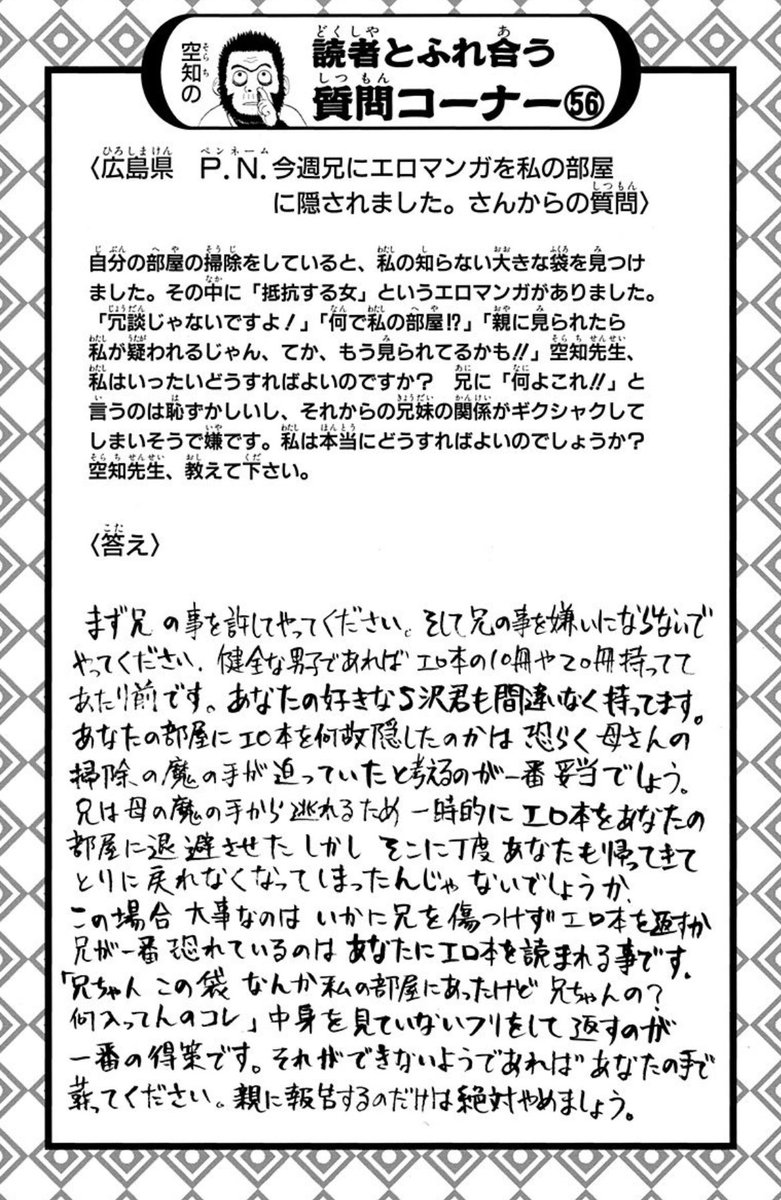 空知の
読者とふれ合う
質問コーナー56
〈広島県 P.N.今週兄にエロマンガを私の部屋
に隠されました。さんからの質問〉
自分の部屋の掃除をしていると、私の知らない大きな袋を見つけ
ました。その中に「抵抗する女」というエロマンガがありました。
「冗談じゃないですよ！」「何で私の部屋!?」「親に見られたら
私が疑われるじゃん、てか、もう見られてるかも!!」空知先生、
私はいったいどうすればよいのですか？ 兄に「何よこれ!!」と
言うのは恥ずかしいし、それからの兄妹の関係がギクシャクして
しまいそうで嫌です。私は本当にどうすればよいのでしょうか？
空知先生、教えて下さい。
〈答え〉
まず兄の事を許してやってください。そして兄の事を嫌いにならないで
やってください。健全な男子であればエロ本の10冊や20冊持ってて
あたり前です。あなたの好きなS沢君も間違いなく持ってます。
あなたの部屋にエロ本を何故隠したのかは恐らく母さんの
掃除の魔の手が迫っていたと考えるのが一番妥当でしょう。
兄は母の魔の手から逃れるため一時的にエロ本をあなたの
部屋に退避させたしかしそこに丁度あなたも帰ってきて
とりに戻れなくなってしまったんじゃないでしょうか。
この場合大事なのはいかに兄を傷つけずエロ本を返すか
兄が一番恐れているのはあなたにエロ本を読まれる事です。
「兄ちゃんこの袋なんか私の部屋にあったけど兄ちゃんの？
何入ってんのコレ」中身を見ていないフリをして返すのが
一番の得策です。それができないようであればあなたの手で
葬ってください。親に報告するのだけは絶対やめましょう。